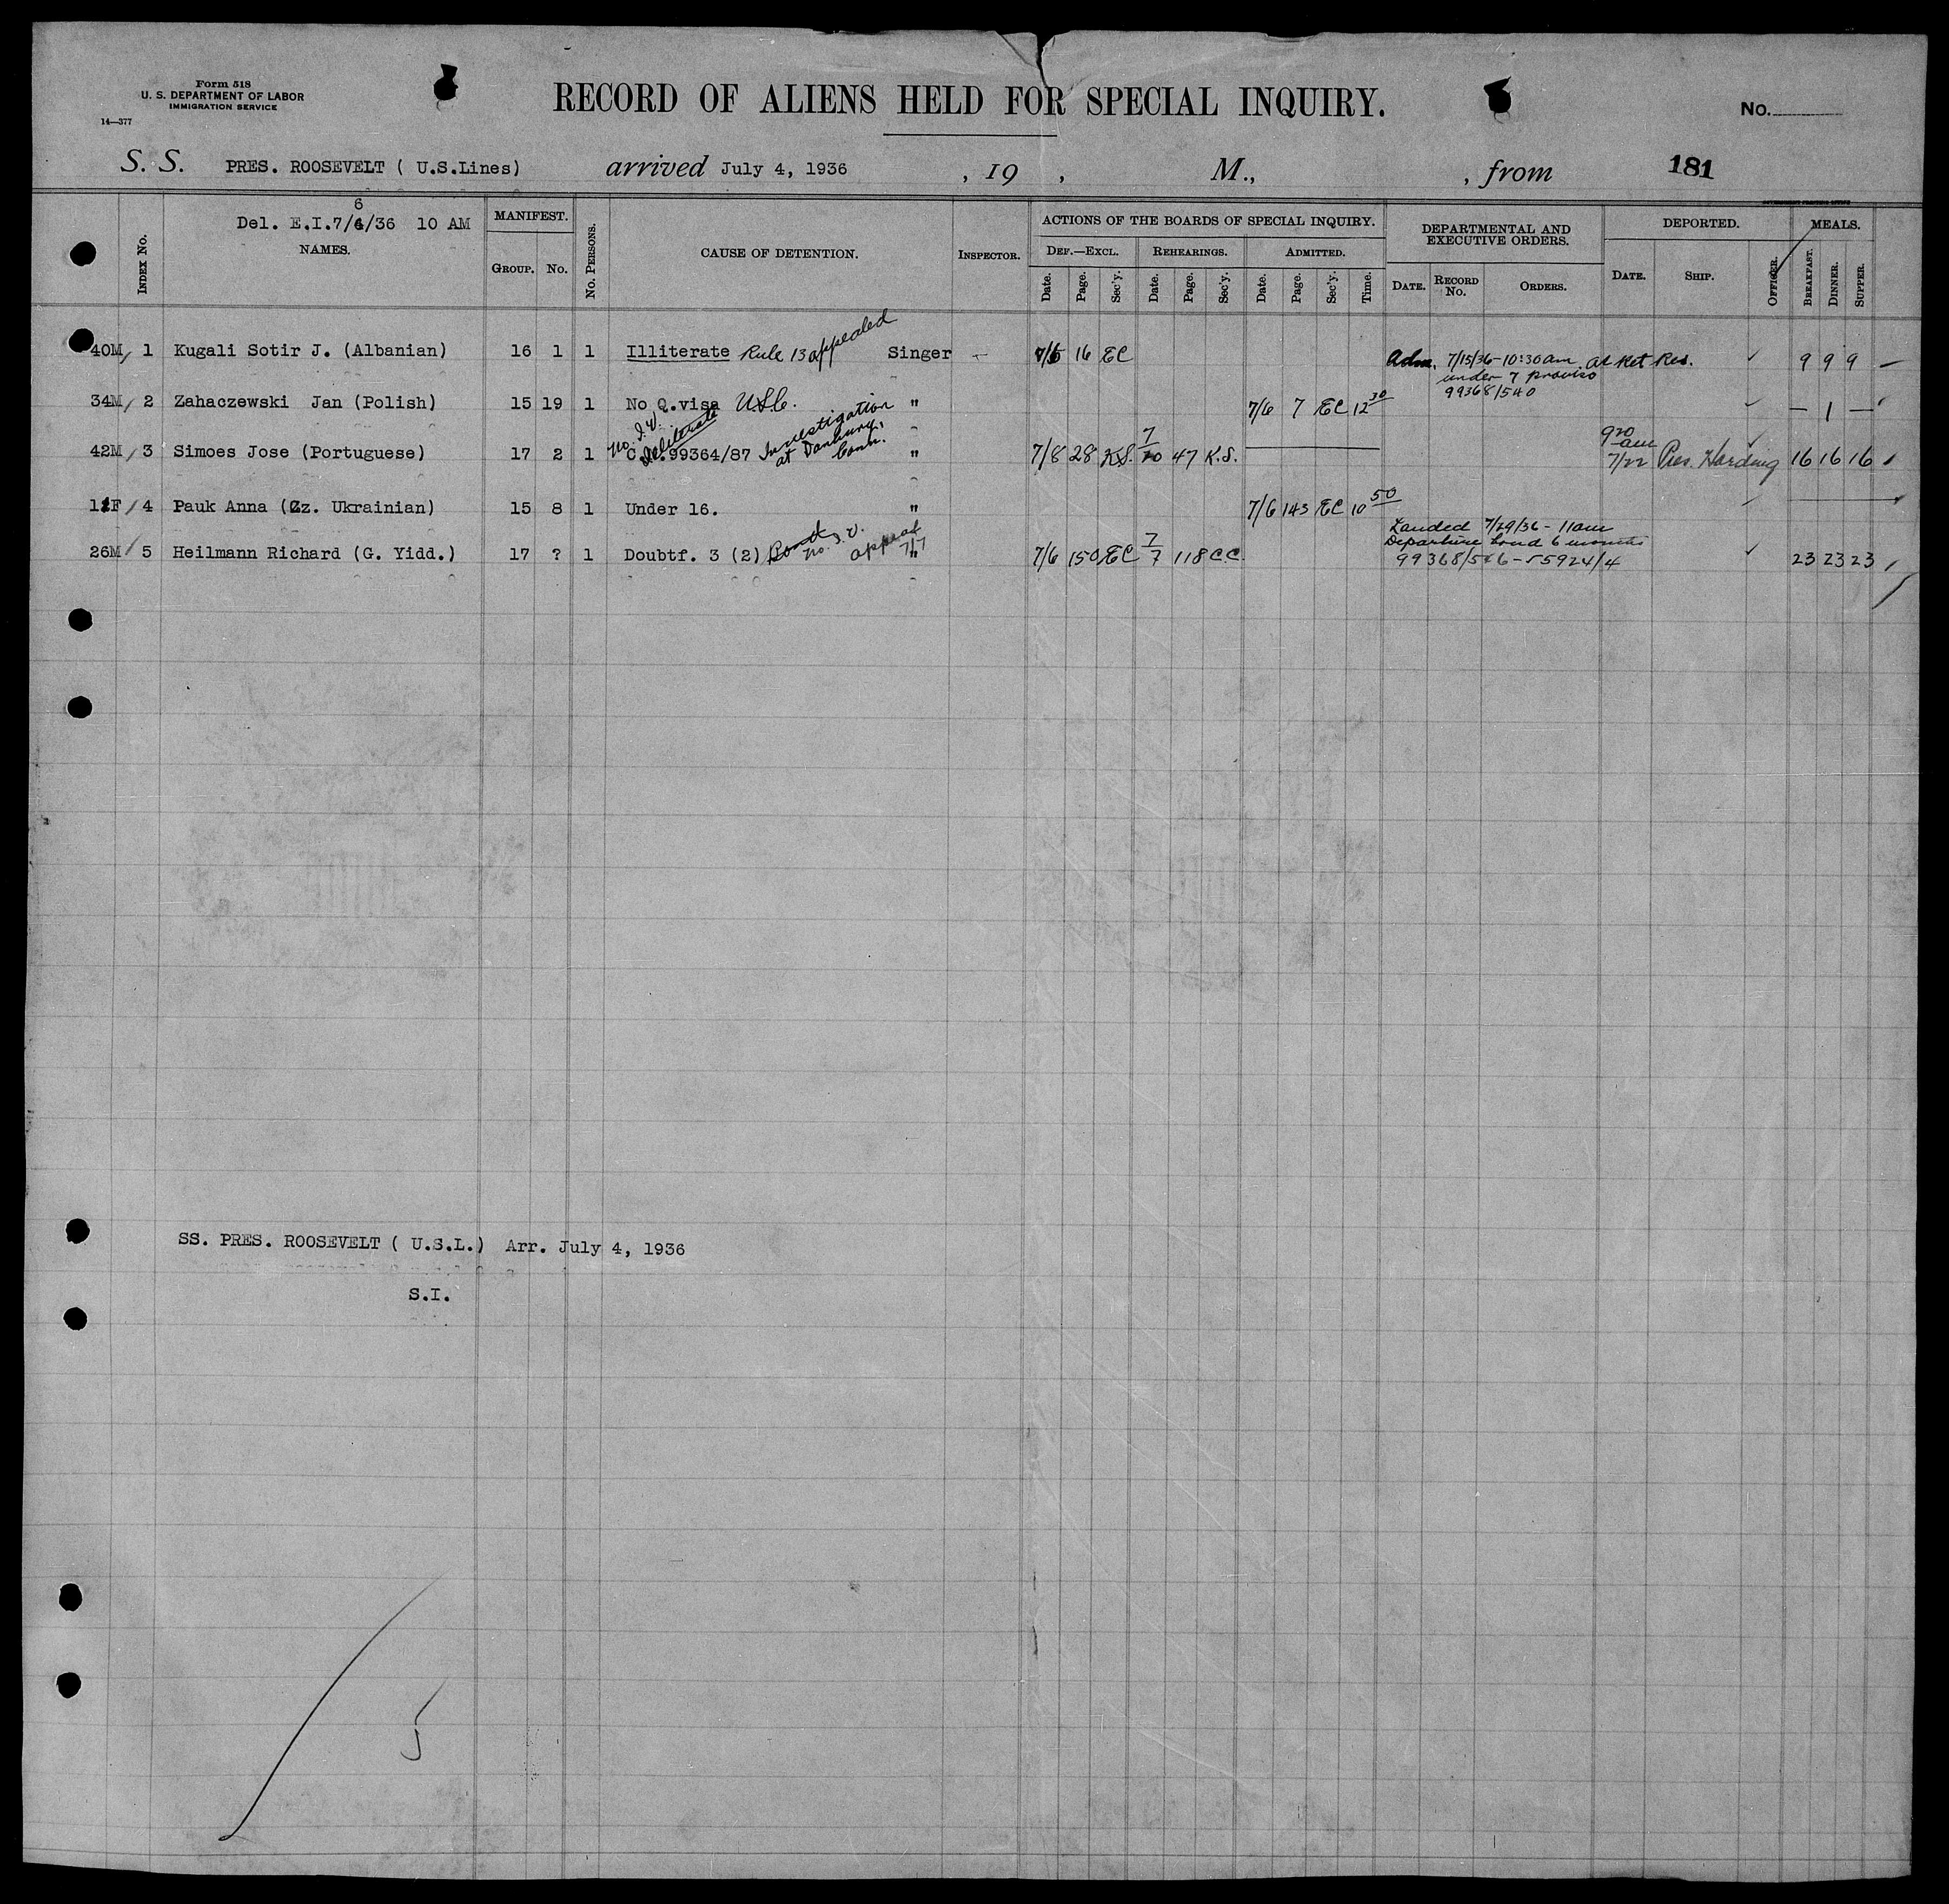 Form 518
U. S. DEPARTMENT OF LABOR
IMMIGRATION SERVICE
14—377
RECORD OF ALIENS HELD FOR SPECIAL INQUIRY.
No.
S. S. PRES. ROOSEVELT ( U.S.Lines) arrived July 4, 1936 , 19 , M., , from 181
6
Del. E.I.7/4/36 10 AM
INDEX No.
NAMES.
MANIFEST.
GROUP. No.
No. PERSONS.
CAUSE OF DETENTION.
INSPECTOR.
ACTIONS OF THE BOARDS OF SPECIAL INQUIRY.
DEF.—EXCL. REHEARINGS. ADMITTED.
Date. Page. Sec'y. Date. Page. Sec'y. Date. Page. Sec'y. Time.
DEPARTMENTAL AND EXECUTIVE ORDERS.
DATE. RECORD No. ORDERS.
DEPORTED.
DATE. SHIP. OFFICER.
MEALS.
BREAKFAST. DINNER. SUPPER.
40M 1 Kugali Sotir J. (Albanian) 16 1 1 Illiterate Rule 13 appealed Singer 7/6 16 EC Adm. 7/15/36-10:30am as Ret Res. 9 9 9
under 7 proviso
99368/540
34M 2 Zahaczewski Jan (Polish) 15 19 1 No Q.visa U.S.C. " 7/6 7 EC 12 30 — 1 —
No. I.V. Illiterate Investigation at Danbury, Conn.
42M 3 Simoes Jose (Portuguese) 17 2 1 99364/87 " 7/8 28 K.S. 7/10 47 K.S. 9 20 am 7/22 Pres. Harding 16 16 16
11F 4 Pauk Anna (Cz. Ukrainian) 15 8 1 Under 16. " 7/6 143 EC 10 50
Landed 7/29/36 - 11am
Departure bond 6 months
26M 5 Heilmann Richard (G. Yidd.) 17 ? 1 Doubtf. 3 (2) no. I.V. appeal 7/7 " 7/6 150 EC 7/7 118 C.C. 99368/546-55924/4 23 23 23
SS. PRES. ROOSEVELT ( U.S.L.) Arr. July 4, 1936
S.I.
5